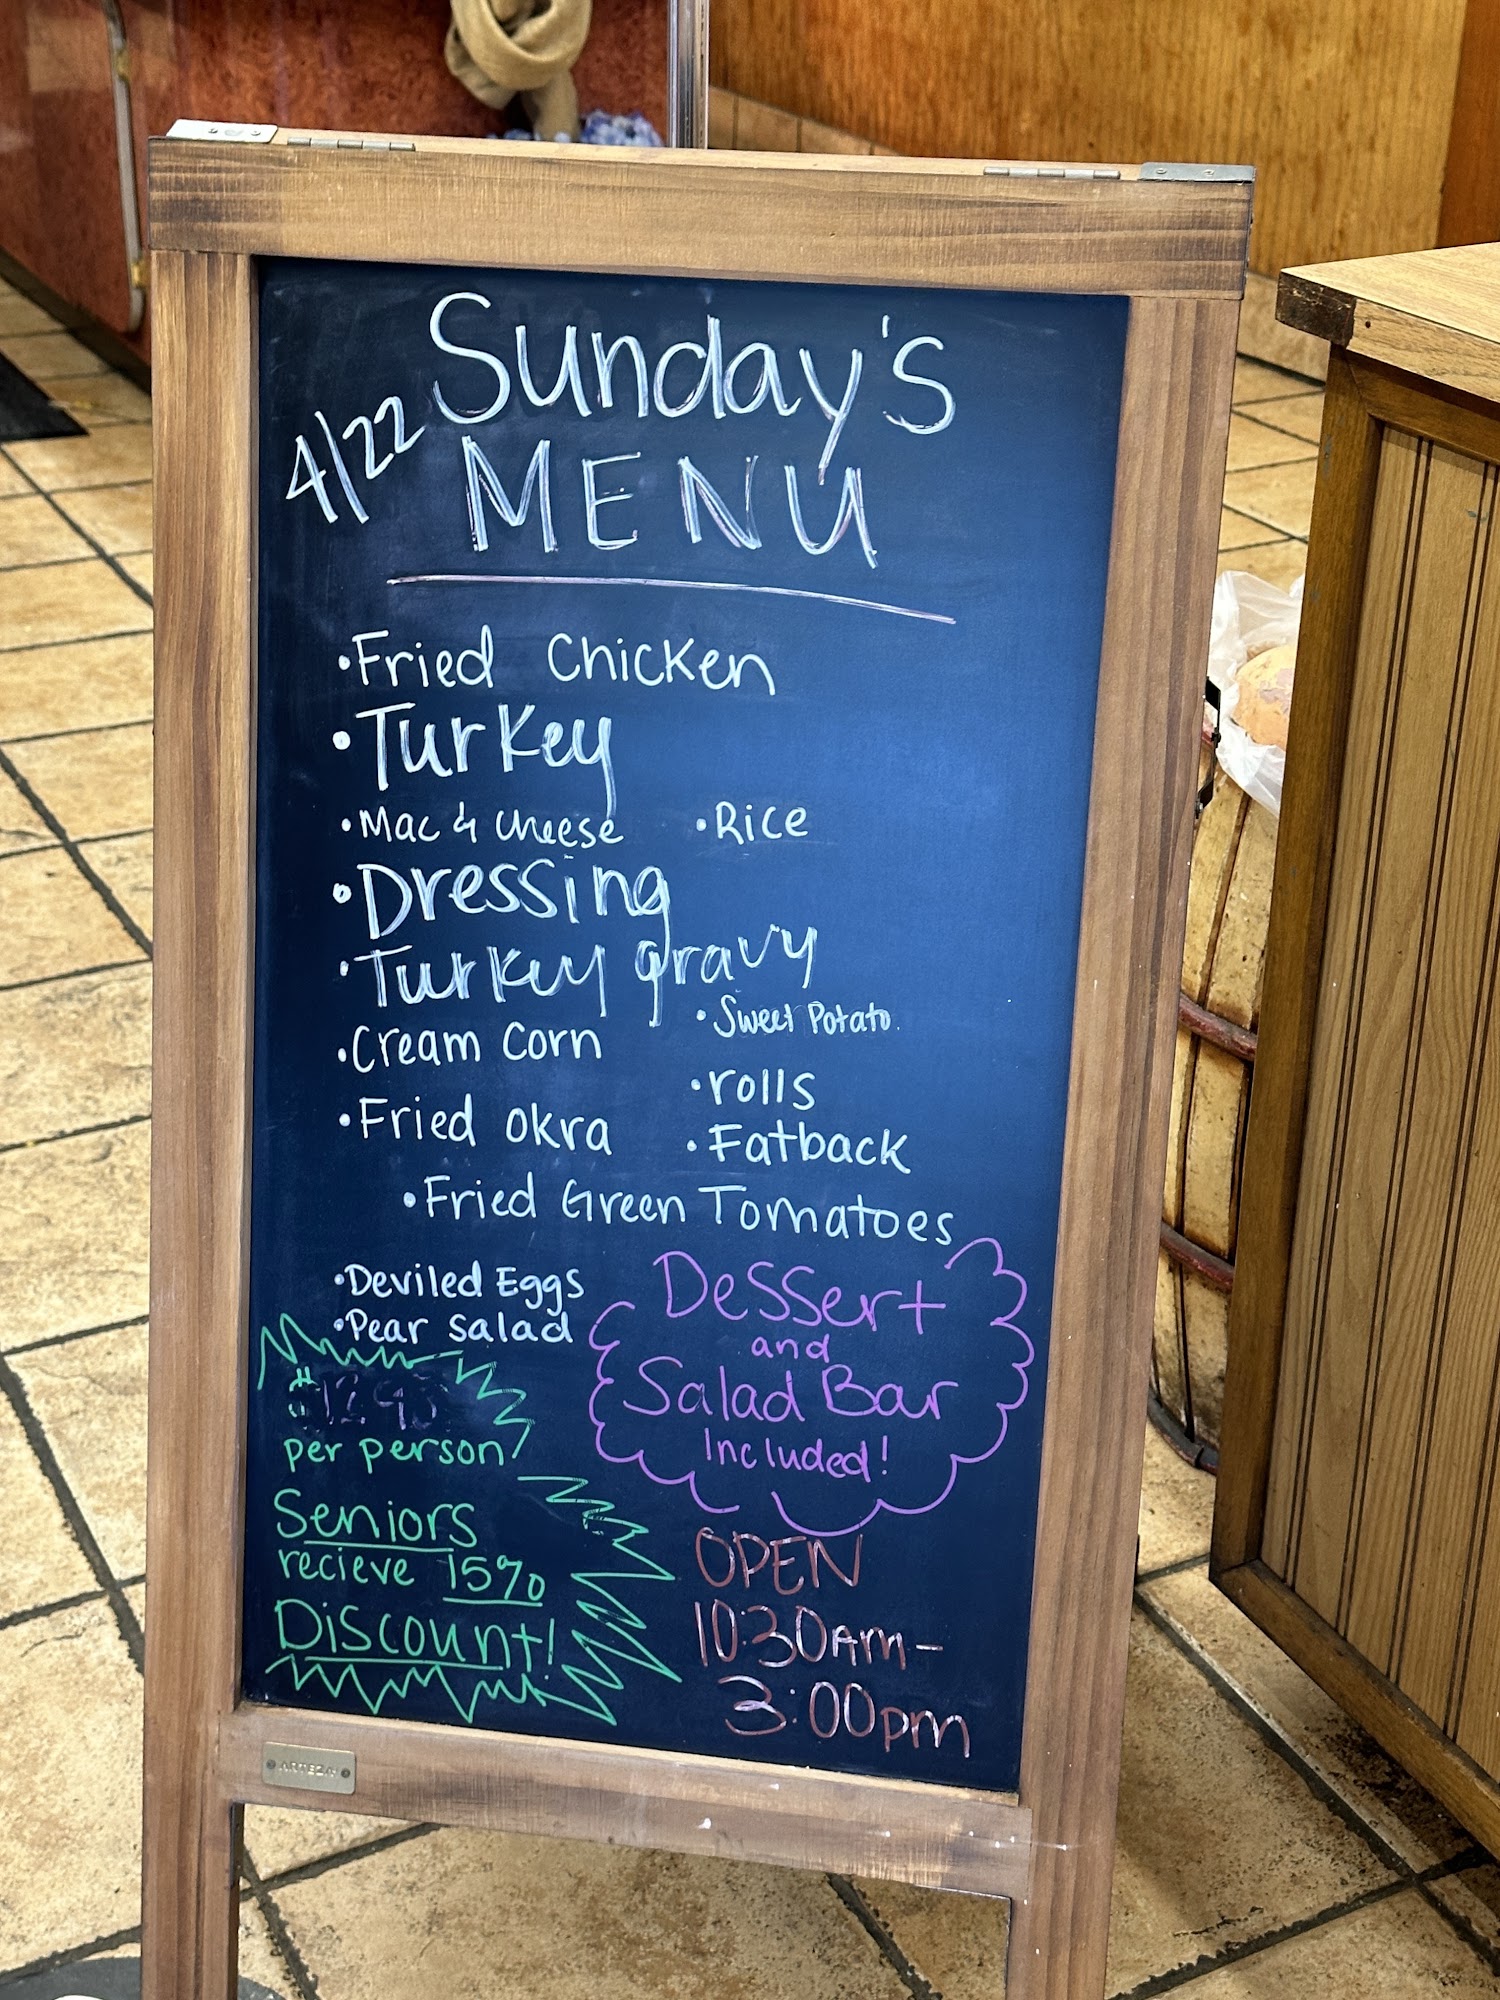 Sunday's
4/22
MENU
• Fried Chicken
• Turkey
• Mac & Cheese • Rice
• Dressing
• Turkey gravy
• Sweet Potato
• Cream Corn
• rolls
• Fried Okra
• Fatback
• Fried Green Tomatoes
• Deviled Eggs
• Pear salad
Dessert
and
Salad Bar
Included!
per person
Seniors
recieve 15%
Discount!
OPEN
10:30AM-
3:00pm
ARTEZA